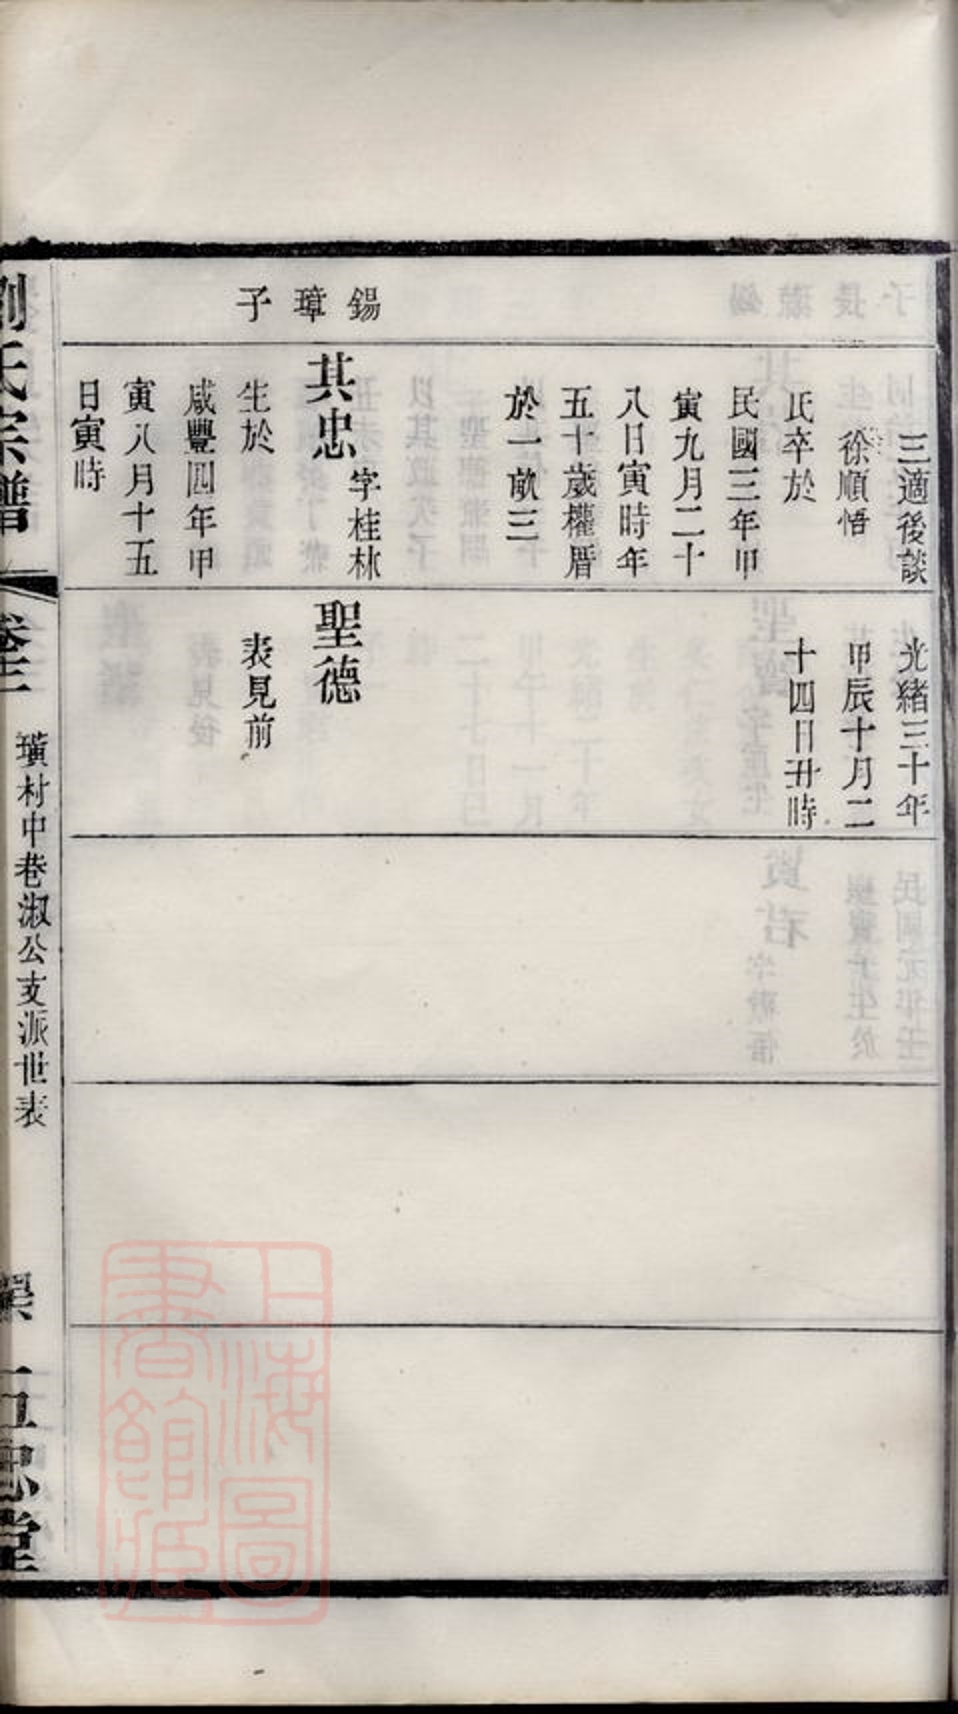 三適後談
徐順悟
氏卒於
民國三年甲
寅九月二十
八日寅時年
五十歲權厝
於一畝三
光緒三十年
甲辰十月二
十四日丑時
錫璋子
其忠
字桂林
生於
咸豐四年甲
寅八月十五
日寅時
聖德
表見前
劉氏宗譜
璜村中巷淑公支派世表
五忠堂
上海圖
書館藏